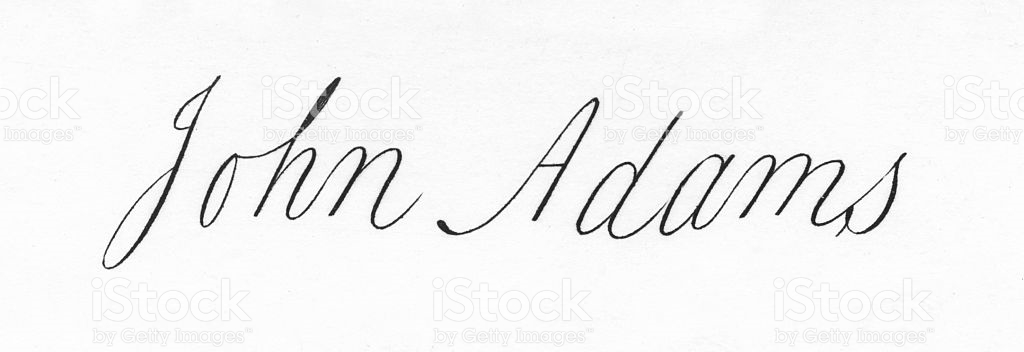 John Adams
iStock
by Getty Images™
iStock
by Getty Images™
iStock
by Getty Images™
iStock
by Getty Images™
iStock
by Getty Images™
iStock
by Getty Images™
iStock
by Getty Images™